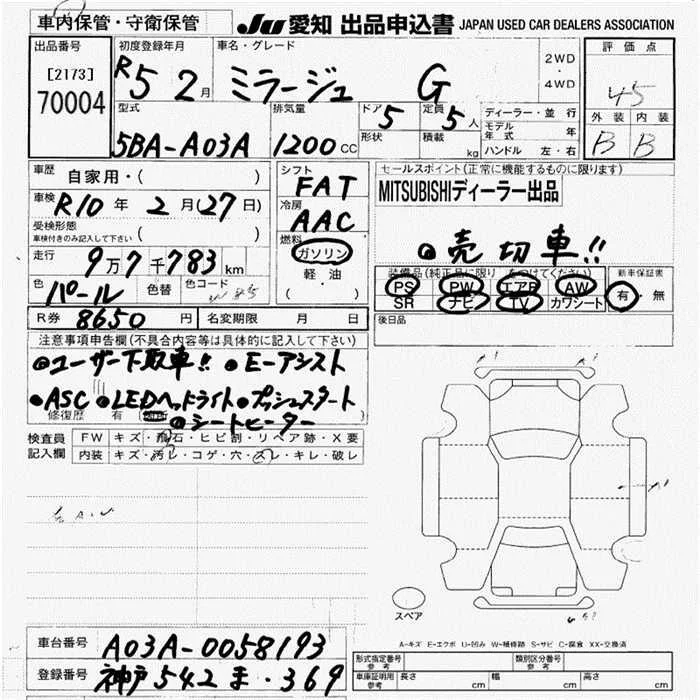 車内保管・守衛保管
Ju 愛知 出品申込書 JAPAN USED CAR DEALERS ASSOCIATION
出品番号
[2173]
70004
初度登録年月
R5 2月
車名・グレード
ミラージュ G
2WD
・
4WD
評価点
45
外装 内装
B B
型式
5BA-A03A
排気量
1200 CC
ドア
5
形状
定員
5人
積載
kg
ディーラー・並行
モデル年式 年
ハンドル 左・右
車歴
自家用・( )
車検
R10年 2月(27日)
受検形態
車検付きのみ記入して下さい ( )
走行
9万7千783km
色
パール
色替
色コード
W85
R券 8650円
名変期限 月 日
シフト
FAT
冷房
AAC
燃料
ガソリン
軽・油
( )
セールスポイント(正常に機能するものに限ります)
MITSUBISHIディーラー出品
◎売切車!!
装備品(純正品に限り をつけてください)
PS PW エアB AW
SR ナビ TV カワシート
新車保証書
有・無
後日品
注意事項申告欄(不具合内容等は具体的に記入して下さい)
◎ユーザー下取車!! ●E-アシスト
●ASC ●LEDヘッドライト ●プッシュスタート
修復歴 有
◎シートヒーター
検査員記入欄
FW キズ・飛石・ヒビ割・リペア跡・X要
内装 キズ・汚レ・コゲ・穴・スレ・キレ・破レ
スペア
A-キズ E-エクボ U-凹み W-補修跡 S-サビ C-腐食 XX-交換済
車台番号 A03A-0058193
登録番号 神戸542ま・369
形式指定番号
参考
類別区分番号
参考
車庫証明用
参考
長さ cm 幅 cm 高さ cm